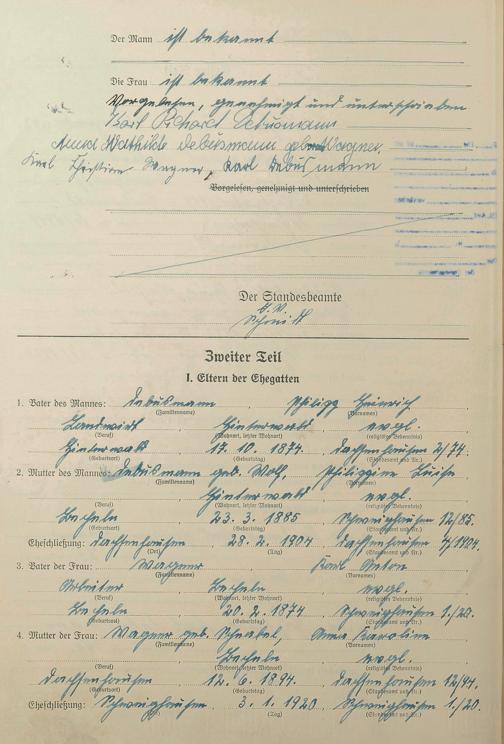 Der Mann ist bekannt
Die Frau ist bekannt
Vorgelesen, genehmigt und unterschrieben
Karl Richard Debusmann
Anna Mathilde Debusmann geb. Wagner
Karl Christian Wagner, Karl Debusmann
Vorgelesen, genehmigt und unterschrieben
Der Standesbeamte
J. V.
Schmidt
Zweiter Teil
I. Eltern der Ehegatten
1. Vater des Mannes: Debusmann, Philipp Heinrich
(Familienname) (Vornamen)
Landwirt, Hinterwald, evgl.
(Beruf) (Wohnort, letzter Wohnort) (religiöses Bekenntnis)
Hinterwald, 17. 10. 1874, Dachsenhausen 2/74.
(Geburtsort) (Geburtstag) (Standesamt und Nr.)
2. Mutter des Mannes: Debusmann geb. Wolf, Philippine Luise
(Familienname) (Vornamen)
Hinterwald, evgl.
(Beruf) (Wohnort, letzter Wohnort) (religiöses Bekenntnis)
Becheln, 23. 3. 1885, Schweighausen 12/85.
(Geburtsort) (Geburtstag) (Standesamt und Nr.)
Eheschließung: Dachsenhausen, 28. 2. 1904, Dachsenhausen /1904.
(Ort) (Tag) (Standesamt und Nr.)
3. Vater der Frau: Wagner, Karl Anton
(Familienname) (Vornamen)
Arbeiter, Becheln, evgl.
(Beruf) (Wohnort, letzter Wohnort) (religiöses Bekenntnis)
Becheln, 20. 2. 1874, Schweighausen 1./20.
(Geburtsort) (Geburtstag) (Standesamt und Nr.)
4. Mutter der Frau: Wagner geb. Schnabel, Anna Karoline
(Familienname) (Vornamen)
Becheln, evgl.
(Beruf) (Wohnort, letzter Wohnort) (religiöses Bekenntnis)
Dachsenhausen, 12. 6. 1894. Dachsenhausen
(Geburtsort) (Geburtstag) (Standesamt und Nr.)
Eheschließung: Schweighausen, 3. 1. 1920, Schweighausen 1./20.
(Ort) (Tag) (Standesamt und Nr.)